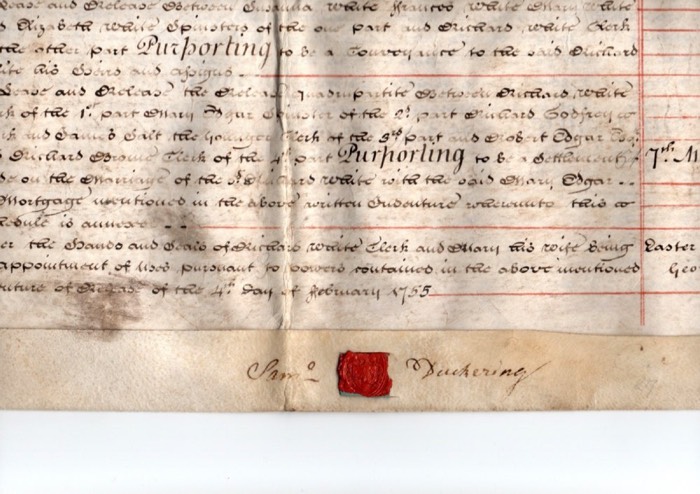 Lease and Release Between Susanna White Frances White Mary White
Elizabeth White Spinsters of the one part and Richard White Clerk
the other part Purporting to be a Conveyance to the said Richard
his Heirs and assigns
Lease and Release the Release Quadrupartite Between Richard White
of the 1st part Mary Edgar Spinster of the 2d part Richard Godfrey
and Daniel Salt the younger Clerk of the 3rd part and Robert Edgar Esqr
Richard Browne Clerk of the 4th part Purporting to be a Settlement 7th M
on the Marriage of the sd Richard White with the said Mary Edgar
Mortgage mentioned in the above written Indenture whereunto this
is annexed
the Hands and Seals of Richard White Clerk and Mary his wife being Easter
appointment of Uses pursuant to powers contained in the above mentioned Geo
of Release of the 4th Day of February 1755
Samo Duckering